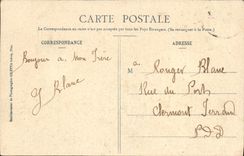 CARTE POSTALE
La Correspondance au recto n'est pas acceptée par tous les Pays Étrangers. (Se renseigner à la Poste.)
CORRESPONDANCE
ADRESSE
Bonjour a Mon Frère
J Blanc
M Rouger Blanc
Rue du Port
Clermont Ferrand
P-D-D